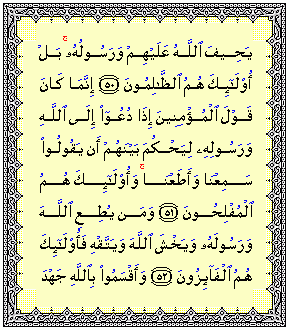 يَحِيفَ ٱللَّهُ عَلَيْهِمْ وَرَسُولُهُۥ ۚ بَلْ
أُو۟لَـٰٓئِكَ هُمُ ٱلظَّـٰلِمُونَ ۝٥٠ إِنَّمَا كَانَ
قَوْلَ ٱلْمُؤْمِنِينَ إِذَا دُعُوٓا۟ إِلَى ٱللَّهِ
وَرَسُولِهِۦ لِيَحْكُمَ بَيْنَهُمْ أَن يَقُولُوا۟
سَمِعْنَا وَأَطَعْنَا ۚ وَأُو۟لَـٰٓئِكَ هُمُ
ٱلْمُفْلِحُونَ ۝٥١ وَمَن يُطِعِ ٱللَّهَ
وَرَسُولَهُۥ وَيَخْشَ ٱللَّهَ وَيَتَّقْهِ فَأُو۟لَـٰٓئِكَ
هُمُ ٱلْفَآئِزُونَ ۝٥٢ وَأَقْسَمُوا۟ بِٱللَّهِ جَهْدَ